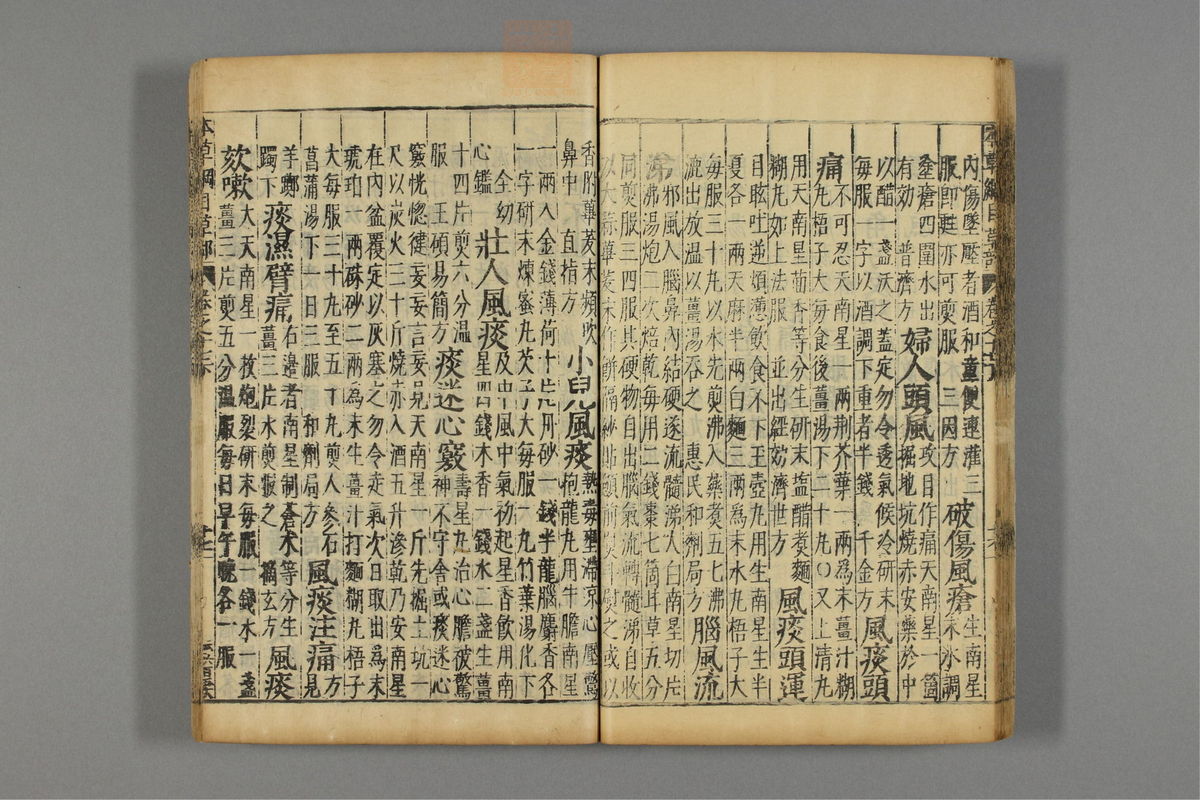 內傷墜壓者酒和童便連灌三
服即甦亦可煎服 三因方
破傷風瘡
生南星
末水調
塗瘡四圍水出
有効 普濟方
婦人頭風
攻目作痛天南星一箇
掘地坑燒赤安藥於中
以醋一盞沃之蓋定勿令透氣候冷研末
每服一字以酒調下重者半錢 千金方
風痰頭
痛
不可忍天南星一兩荊芥葉一兩為末薑汁糊
丸梧子大每食後薑湯下二十丸○又上清丸
用天南星茴香等分生研末塩醋煮麵
糊丸如上法服 並出經効濟世方
風痰頭運
目眩吐逆煩懣飲食不下玉壺丸用生南星生半
夏各一兩天麻半兩白麵三兩為末水丸梧子大
每服三十丸以水先煎沸入藥煮五七沸
漉出放温以薑湯吞之 惠民和劑局方
腦風流
涕
邪風入腦鼻內結硬遂流髓涕大白南星切片
沸湯炮二次焙乾每用二錢棗七箇甘草五分
同煎服三四服其硬物自出腦氣流轉髓涕自收
以大蒜蓽茇末作餅隔紗貼顖前熨斗熨之或以
香附蓽茇末頻吹
鼻中 直指方
小兒風痰
熱毒壅滯凉心壓驚
抱龍丸用牛膽南星
一兩入金錢薄荷十片丹砂一錢半龍腦麝香各
一字研末煉蜜丸芡子大每服一丸竹葉湯化下
全幼
心鑑
壯人風痰
及中風中氣初起星香飲用南
星四錢木香一錢水二盞生薑
十四片煎六分温
服 王碩易簡方
痰迷心竅
壽星丸治心膽被驚
神不守舍或痰迷心
竅恍惚健妄妄言妄見天南星一斤先掘土坑一
尺以炭火三十斤燒赤入酒五升滲乾乃安南星
在內盆覆定以灰塞之勿令走氣次日取出為末
琥珀一兩硃砂二兩為末生薑汁打麵糊丸梧子
大每服三十丸至五十丸煎人參石
菖蒲湯下一日三服 和劑局方
風痰注痛
方見
羊躑
躅下
痰濕臂痛
右邊者南星制蒼朮等分生
薑三片水煎服之 摘玄方
風痰
欬嗽
大天南星一枚炮裂研末每服一錢水一盞
薑三片煎五分温服每日早午晚各一服
本草綱目草部